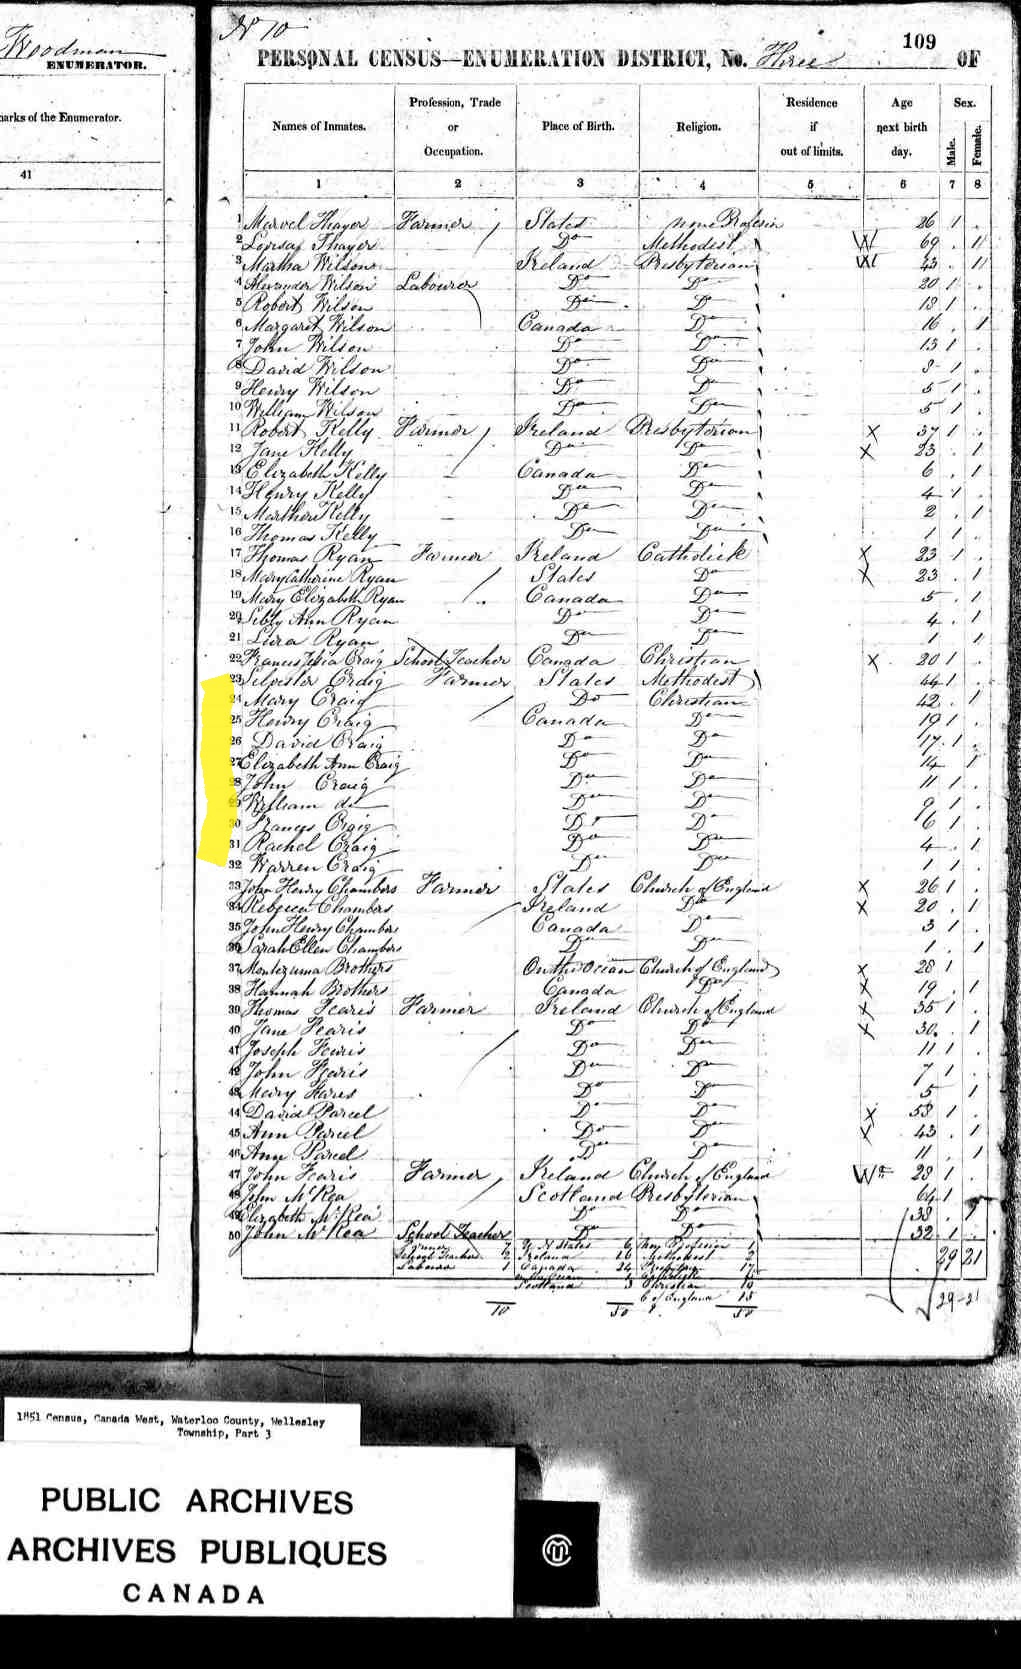 Woodman
ENUMERATOR.
arks of the Enumerator.
41
No 10
109
PERSONAL CENSUS—ENUMERATION DISTRICT, No. Three OF
Names of Inmates. Profession, Trade or Occupation. Place of Birth. Religion. Residence if out of limits. Age next birth day. Sex. Male. Female.
1 2 3 4 5 6 7 8
1 Marvel Thayer Farmer States none Profesin 26 1
2 Thayer Do Methodest W 69 11
3 Martha Wilson Ireland Presbyterian W 43 11
4 Alexander Wilson Labourer Do Do 20 1
5 Robert Wilson Do Do 18 1
6 Margaret Wilson Canada Do 16 1
7 John Wilson Do Do 13 1
8 David Wilson Do Do 8 1
9 Henry Wilson Do Do 5 1
10 William Wilson Do Do 5 1
11 Robert Kelly Farmer Ireland Presbyterian X 37 1
12 Jane Kelly Do Do X 23 1
13 Elizabeth Kelly Canada Do 6 1
14 Henry Kelly Do Do 4 1
15 Martha Kelly Do Do 2 1
16 Thomas Kelly Do Do 1 1
17 Thomas Ryan Farmer Ireland Catholick X 23 1
18 Mary Catherine Ryan States Do X 23 1
19 Mary Elizabeth Ryan Canada Do 5 1
20 Sibly Ann Ryan Do Do 4 1
21 Ryan Do Do 1 1
22 Francis Craig School Teacher Canada Christian X 20 1
23 Silvester Craig Farmer States Methodest 44 1
24 Mary Craig Do Christian 42 1
25 Henry Craig Canada Do 19 1
26 David Craig Do Do 17 1
27 Elizabeth Ann Craig Do Do 14 1
28 John Craig Do Do 11 1
29 William do Do Do 9 1
30 Francis Craig Do Do 6 1
31 Rachel Craig Do Do 4 1
32 Warren Craig Do Do 1 1
33 John Henry Chambers Farmer States Church of England X 26 1
34 Rebecca Chambers Ireland Do X 20 1
35 John Henry Chambers Canada D 3 1
36 Sarah Ellen Chambers Do Do 1 1
37 Montezuma Brothers On the Ocean Church of England X 28 1
38 Hannah Brothers Canada Do X 19 1
39 Thomas Fearis Farmer Ireland Church of England X 35 1
40 Jane Fearis Do Do X 30 1
41 Joseph Fearis Do Do 11 1
42 John Fearis Do Do 7 1
43 Mary Do Do 5 1
44 David Parcel Do Do X 53 1
45 Ann Parcel Do Do X 43 1
46 Ann Parcel Do Do 11 1
47 John Fearis Farmer Ireland Church of England 28 1
48 John McKea Scotland Presbyterian 64 1
49 Elizabeth McKea Do Do 38 1
50 John McKea School Teacher Do Do 32 1
Farmer 7 States 6 Profession 1
School Teacher 2 Ireland 16 Methodest 2 29 21
Labourer 1 Canada 24
Scotland 3 Christian 10
C of England 15
10 50 50 29-21
1851 Census, Canada West, Waterloo County, Wellesley
Township, Part 3
PUBLIC ARCHIVES
ARCHIVES PUBLIQUES
CANADA